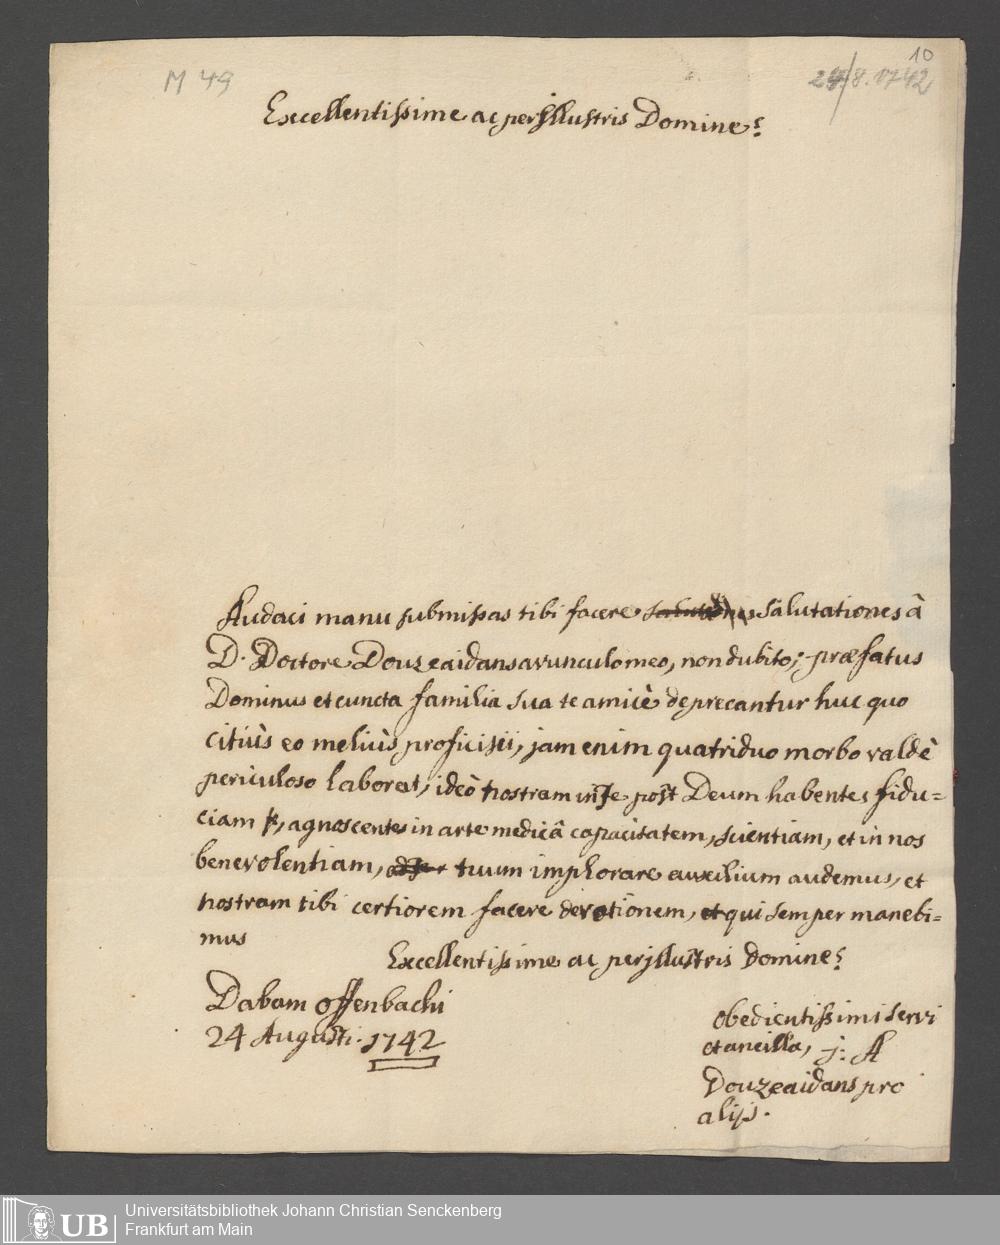 10
M 49
24/8.1742
Excellentissime ac perjllustris Domine!
Audaci manu submissas tibi facere salutationes â
D. Doctore Douzeaidans avunculo meo, non dubito; præfatus
Dominus et cuncta familia sua te amicè deprecantur huc quo
citiùs eo meliùs proficisci, jam enim quatriduo morbo valdè
periculoso laborat, ideò nostram in te post Deum habentes fidu=
ciam, agnoscentes in arte medicâ capacitatem, scientiam, et in nos
benevolentiam, tuum implorare auxilium audemus, et
nostram tibi certiorem facere devotionem, et qui semper manebi=
mus
Excellentissime ac perjllustris Domine!
Dabam offenbachi
24 Augusti. 1742
obedientissimi servi
et ancilla, j: A
Douzeaidans pro
alijs.
UB
Universitätsbibliothek Johann Christian Senckenberg
Frankfurt am Main